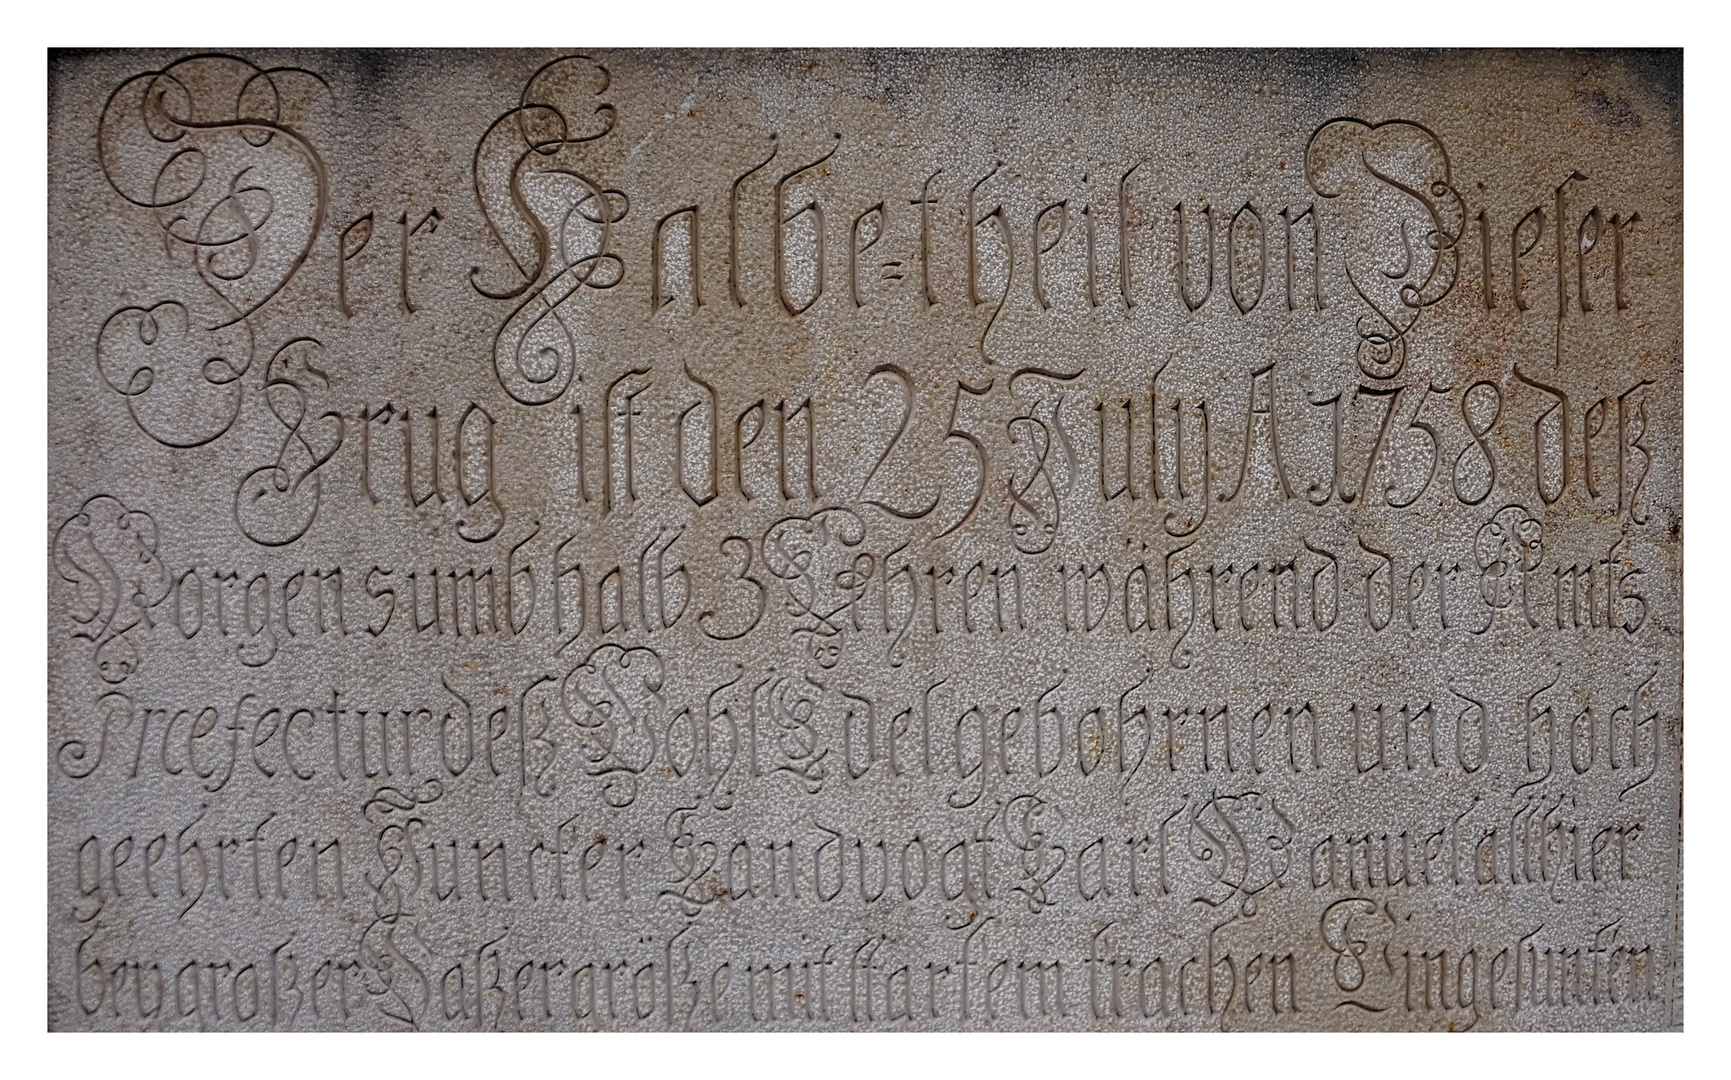 Der Halbe=theil von Dieser
Brug ist den 25 July A 1758 deß
Morgens umb halb 3 Uhren während der Amts
Præfectur deß WohlEdelgebohrnen und hoch
geehrten Juncker Landvogt Karl Manuel allhier
bey großer Waßergröße mit starkem krachen Eingesunken